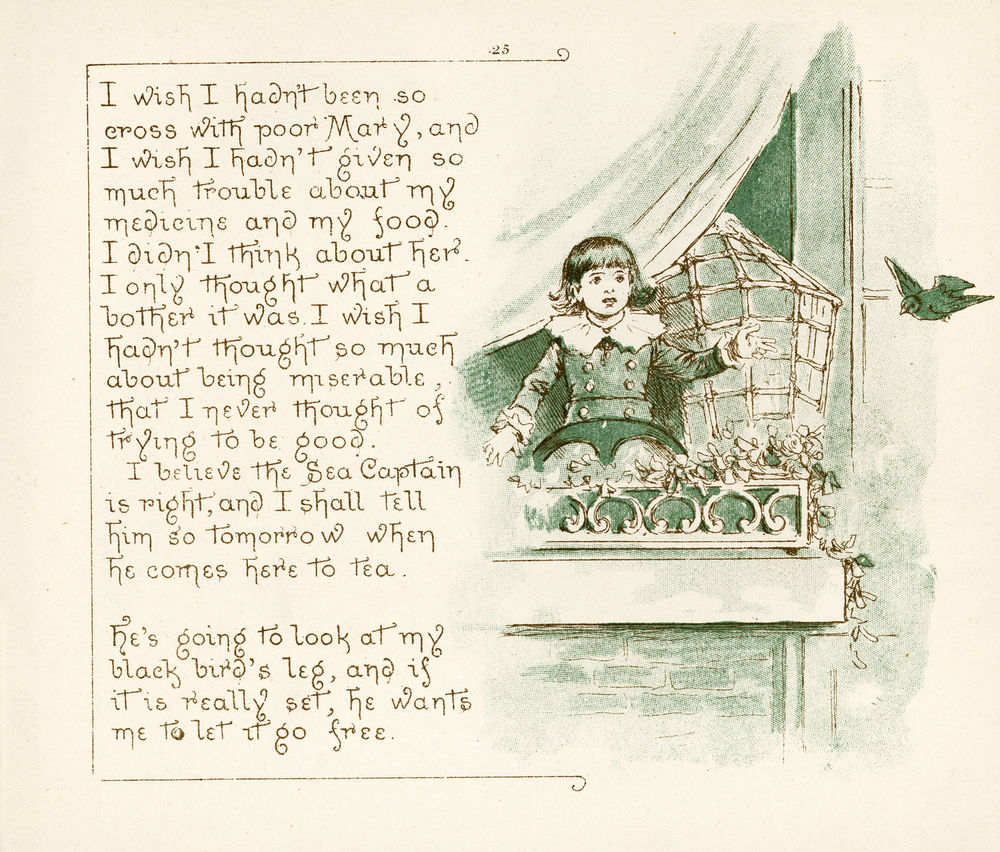 25
I wish I hadn't been so
cross with poor Mary, and
I wish I hadn't given so
much trouble about my
medicine and my food.
I didn't think about her.
I only thought what a
bother it was. I wish I
hadn't thought so much
about being miserable,
that I never thought of
trying to be good.
I believe the Sea Captain
is right, and I shall tell
him so tomorrow when
he comes here to tea.
He's going to look at my
black bird's leg, and if
it is really set, he wants
me to let it go free.